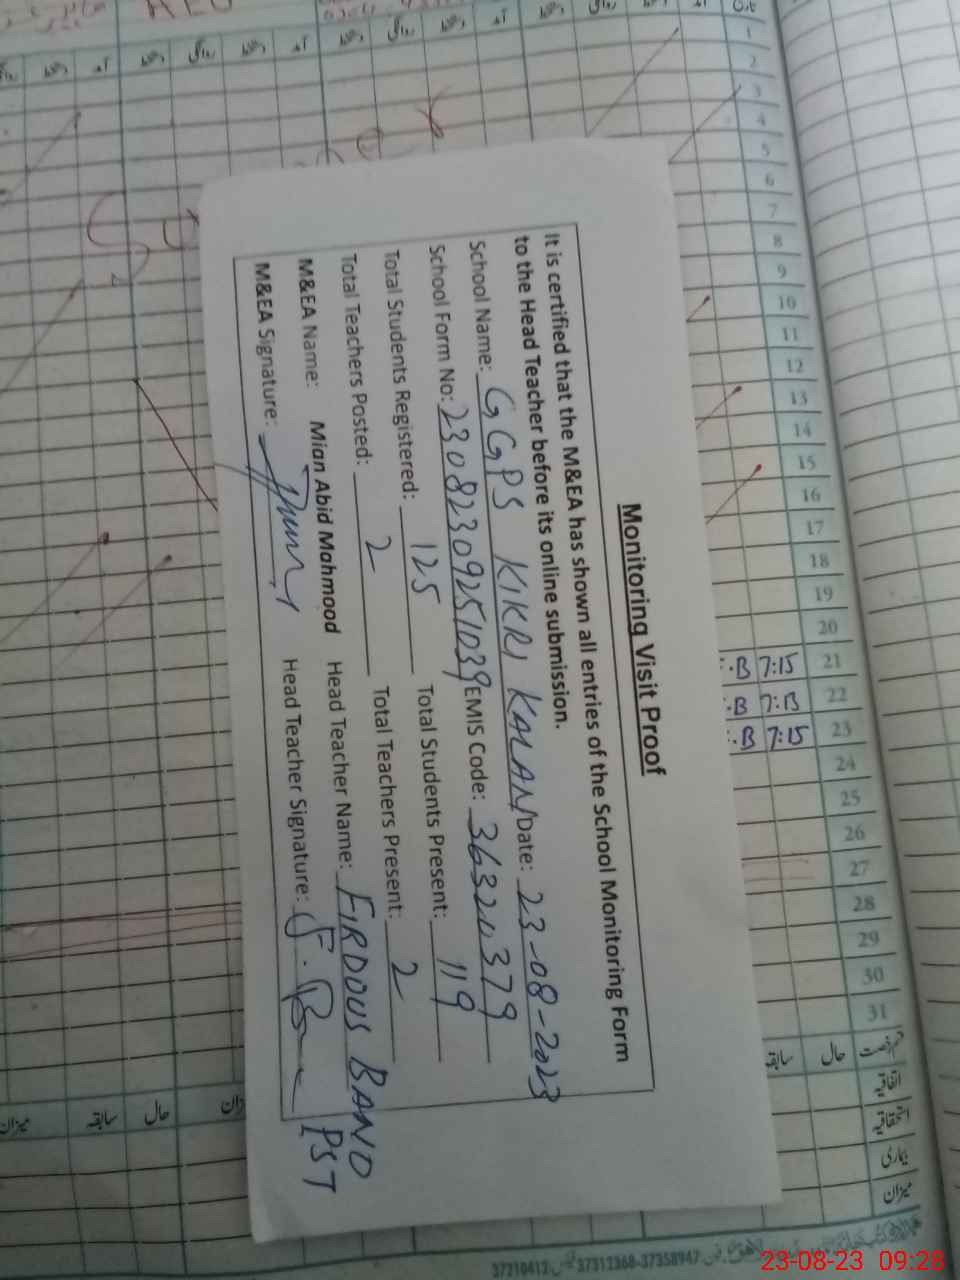 Monitoring Visit Proof
It is certified that the M&EA has shown all entries of the School Monitoring Form
to the Head Teacher before its online submission.
School Name: GGPS KIKRI KALAN Date: 23-08-2023
School Form No: 23082309251039 EMIS Code: 36320379
Total Students Registered: 125 Total Students Present: 119
Total Teachers Posted: 2 Total Teachers Present: 2
M&EA Name: Mian Abid Mahmood Head Teacher Name: FIRDOUS BANO
M&EA Signature: Head Teacher Signature: F.B PST
1
2
3
4
5
6
7
8
9
10
11
12
13
14
15
16
17
18
19
20
21 7:15
22 7:15
23 7:15
24
25
26
27
28
29
30
31
حال سابقہ
اتفاقیہ
استحقاقیہ
بیماری
میزان
میزان سابقہ حال
37210412 37313368-37358947
23-08-23 09:28